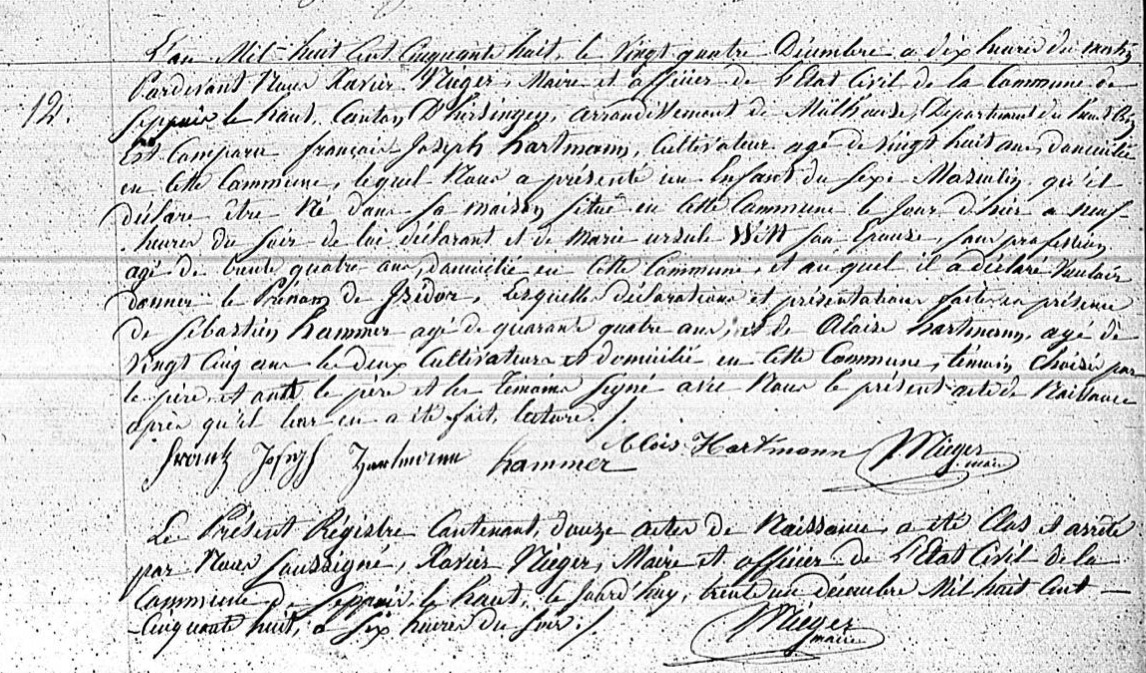 L'an Mil huit Cent Cinquante huit, le vingt quatre Décembre a dix heures du matin
Pardevant Nous Xavier Nieger, Maire et officier de l'Etat Civil de la Commune de
12. Seppois le haut, Canton D'hirsingen, arrondissement de Mulhouse, Département du haut Rhin
Est Comparu françois Joseph hartmann, Cultivateur agé de vingt huit ans, domicilié
en Cette Commune, lequel Nous a présenté un Enfant du Sexe Masculin, qu'il
déclare être Né dans sa maison située en Cette Commune le Jour d'hier a neuf
heures du Soir de lui déclarant et de Marie ursule Witt son Epouse, sans profession
agé de trente quatre ans, domicilié en Cette Commune, et au quel il a déclaré vouloir
donner le Prénom de Isidor, Lesquelles déclarations et présentations faites en présence
de Sébastien hammer agé de quarante quatre ans, et de Aloise hartmann, agé de
vingt Cinq ans les deux Cultivateurs et domicilié en Cette Commune, témoins Choisis par
le père, et ont le père et les témoins Signé avec Nous le présent acte de Naissance
après qu'il leur en a été fait lecture ./.
Frantz Joseph Hartmann hammer Alois Hartmann Nieger maire
Le Présent Régistre Contenant douze actes de Naissance, a été Clos et arrêté
par Nous Soussigné, Xavier Nieger, Maire et officier de l'Etat Civil de la
Commune de Seppois le haut, le Jourd'huy, trente un décembre Mil huit Cent
Cinquante huit, à Six heures du Soir ./. Nieger maire